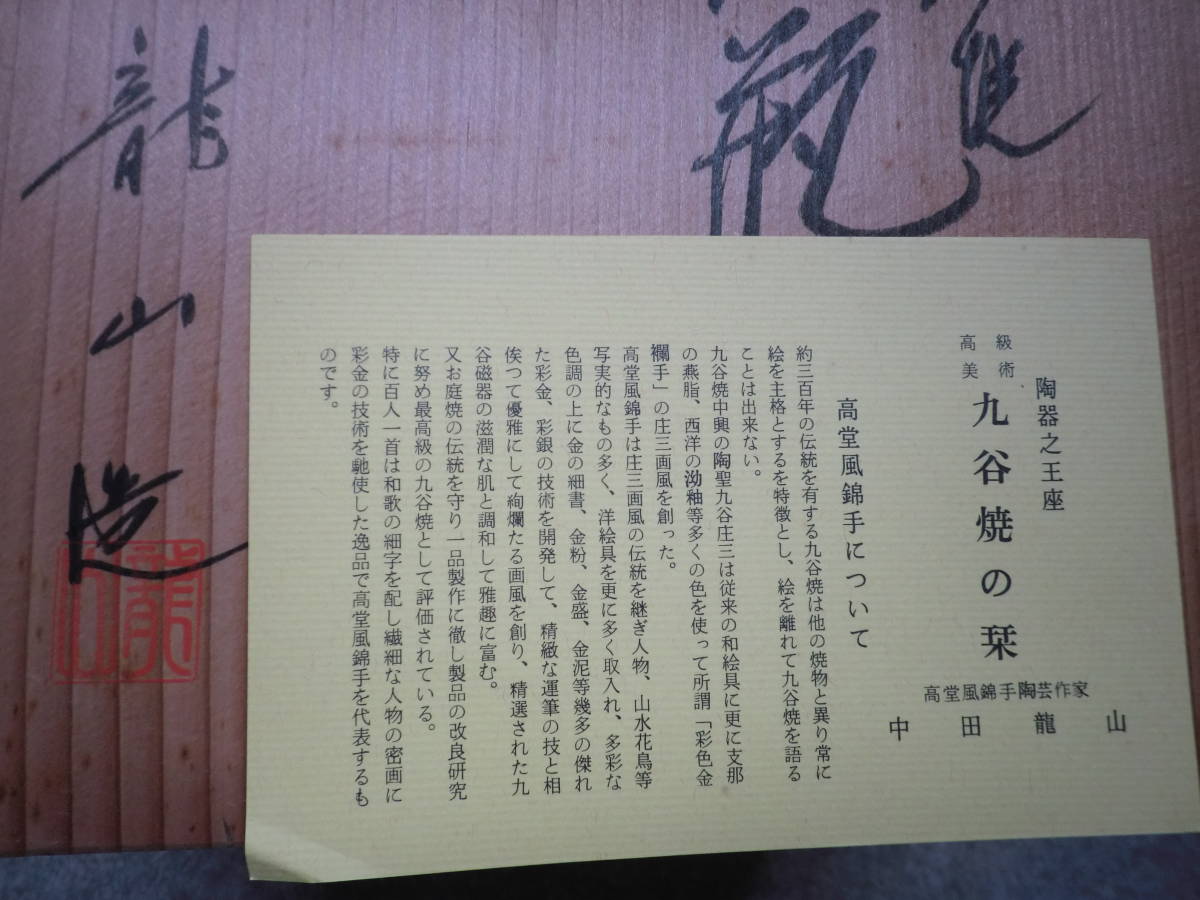 瓶
龍山造
龍山
陶器之王座
高級
美術
九谷焼の栞
高堂風錦手陶芸作家
中田龍山
高堂風錦手について
約三百年の伝統を有する九谷焼は他の焼物と異り常に
絵を主格とするを特徴とし、絵を離れて九谷焼を語る
ことは出来ない。
九谷焼中興の陶聖九谷庄三は従来の和絵具に更に支那
の燕脂、西洋の泑釉等多くの色を使って所謂「彩色金
襴手」の庄三画風を創った。
高堂風錦手は庄三画風の伝統を継ぎ人物、山水花鳥等
写実的なもの多く、洋絵具を更に多く取入れ、多彩な
色調の上に金の細書、金粉、金盛、金泥等幾多の傑れ
た彩金、彩銀の技術を開発して、精緻な運筆の技と相
俟つて優雅にして絢爛たる画風を創り、精選された九
谷磁器の滋潤な肌と調和して雅趣に富む。
又お庭焼の伝統を守り一品製作に徹し製品の改良研究
に努め最高級の九谷焼として評価されている。
特に百人一首は和歌の細字を配し繊細な人物の密画に
彩金の技術を馳使した逸品で高堂風錦手を代表するも
のです。